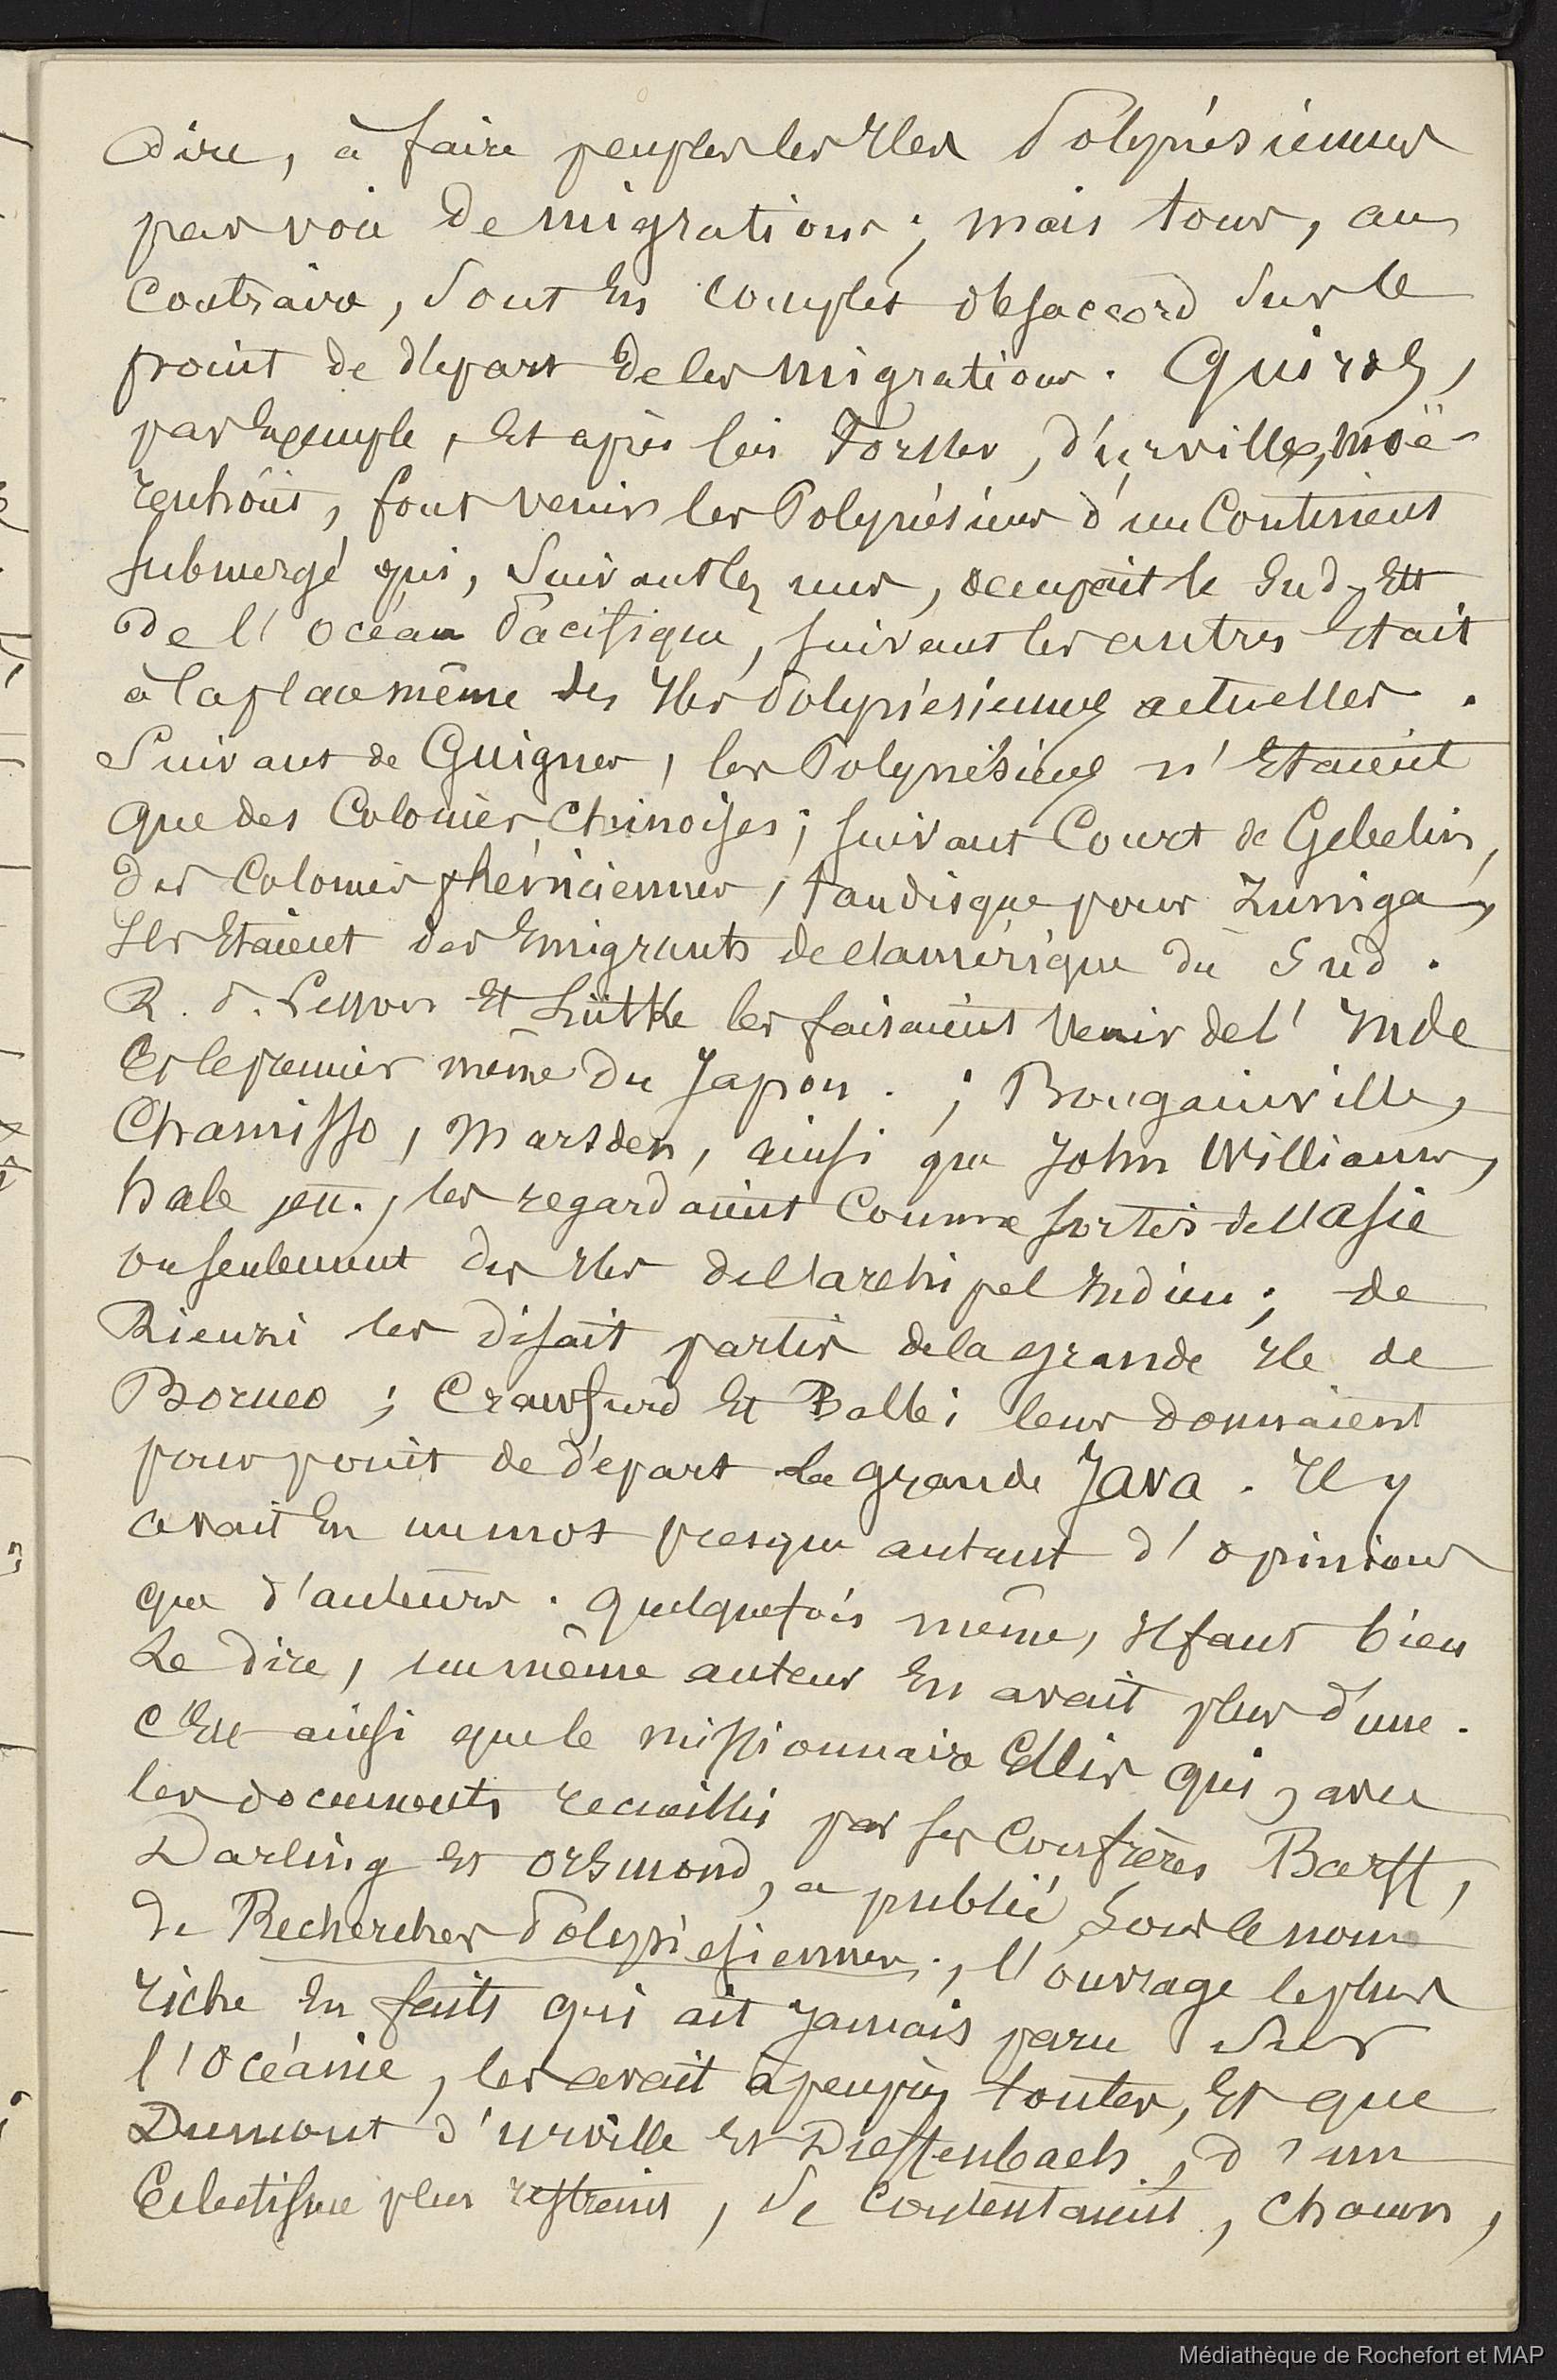 dire, à faire peupler les Iles Polynésiennes
par voie de migrations ; mais tous, au
contraire, sont en complet désaccord sur le
point de départ de les migrations. Quiros,
par Exemple, Et après lui Forster, d'urville, moë-
renhoüt, font venir les Polynésiens d'un Continent
submergé qui, suivant les uns, occupait le Sud-Est
de l'océan Pacifique, suivant les autres Etait
à la place même des Iles Polynésiennes actuelles.
Suivant de Guignes, les Polynésiens n'Etaient
que des Colonies Chinoises ; suivant Court de Gebelin,
des Colonies phéniciennes, tandis que pour Zuniga,
Ils Etaient des Emigrants de l'amérique du Sud.
R. P. Lesson Et Lütke les faisaient venir de l'Inde
Et le premier même du Japon. ; Bougainville,
Chamisso, Marsden, ainsi que John Williams,
hale &., les regardaient Comme sortis de l'asie
ou seulement des Iles de l'archipel Indien ; de
Rienzi les disait partis de la grande Ile de
Borneo ; Crawfurd Et Balbi leur donnaient
pour point de départ la grande Java. Il y
avait En un mot presque autant d'opinions
que d'auteurs. quelquefois même, Il faut bien
Le dire, un même auteur En avait plus d'une.
C'Est ainsi que le missionnaire Ellis qui, avec
les documents recueillis par ses Confrères Barff,
Darling Et orsmond, a publié sous le nom
de Recherches Polynésiennes ; l'ouvrage le plus
riche En faits qui ait Jamais paru sur
l'Océanie, les avait à peu près toutes, Et que
Dumont d'urville Et Dieffenbach, d'un
Eclectisme plus restreint, se contentaient, chacun,
Médiathèque de Rochefort et MAP